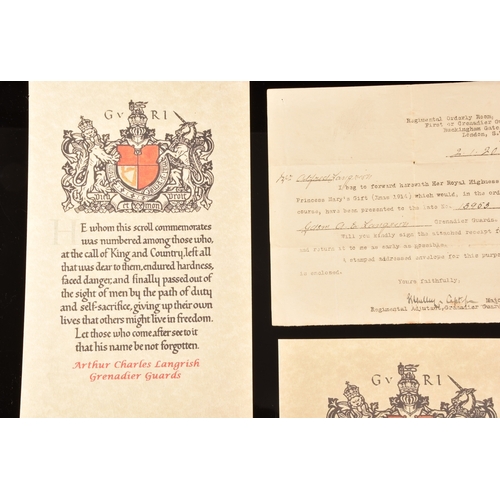 GV RI
Dieu et mon Droit
HE whom this scroll commemorates
was numbered among those who,
at the call of King and Country, left all
that was dear to them, endured hardness,
faced danger, and finally passed out
of the sight of men by the path of duty
and self-sacrifice, giving up their own
lives that others might live in freedom.
Let those who come after see to it
that his name be not forgotten.
Arthur Charles Langrish
Grenadier Guards
Regimental Orderly Room,
First or Grenadier
Buckingham Gate
London, S.
I beg to forward herewith Her Royal Highness
Princess Mary's Gift (Xmas 1914) which would, in the
course, have been presented to the late No.
Grenadier Guards.
Will you kindly sign the attached receipt
and return it to me as early as possible.
A stamped addressed envelope for this
is enclosed.
Yours faithfully,
Regimental Adjutant, Grenadier
GV RI